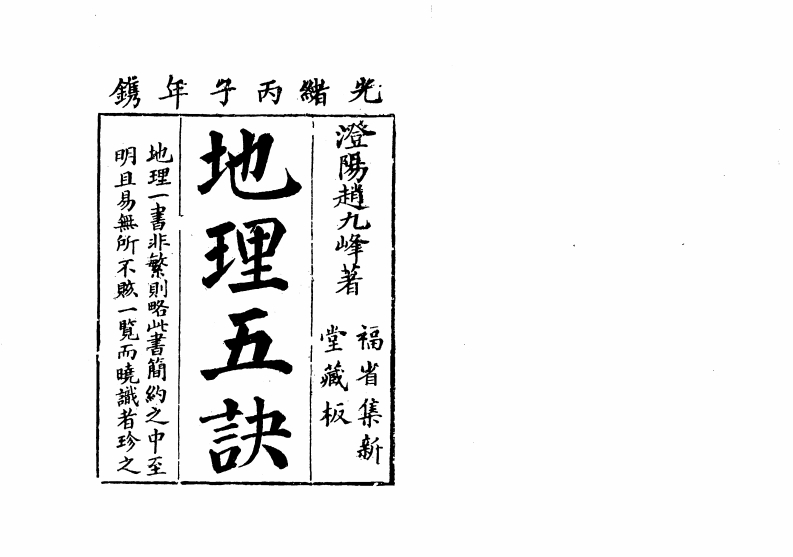 光緒丙子年鐫
澄陽趙九峰著
福省集新
堂藏板
地理五訣
地理一書非繁則略此書簡約之中至
明且易無所不賅一覧而曉識者珍之